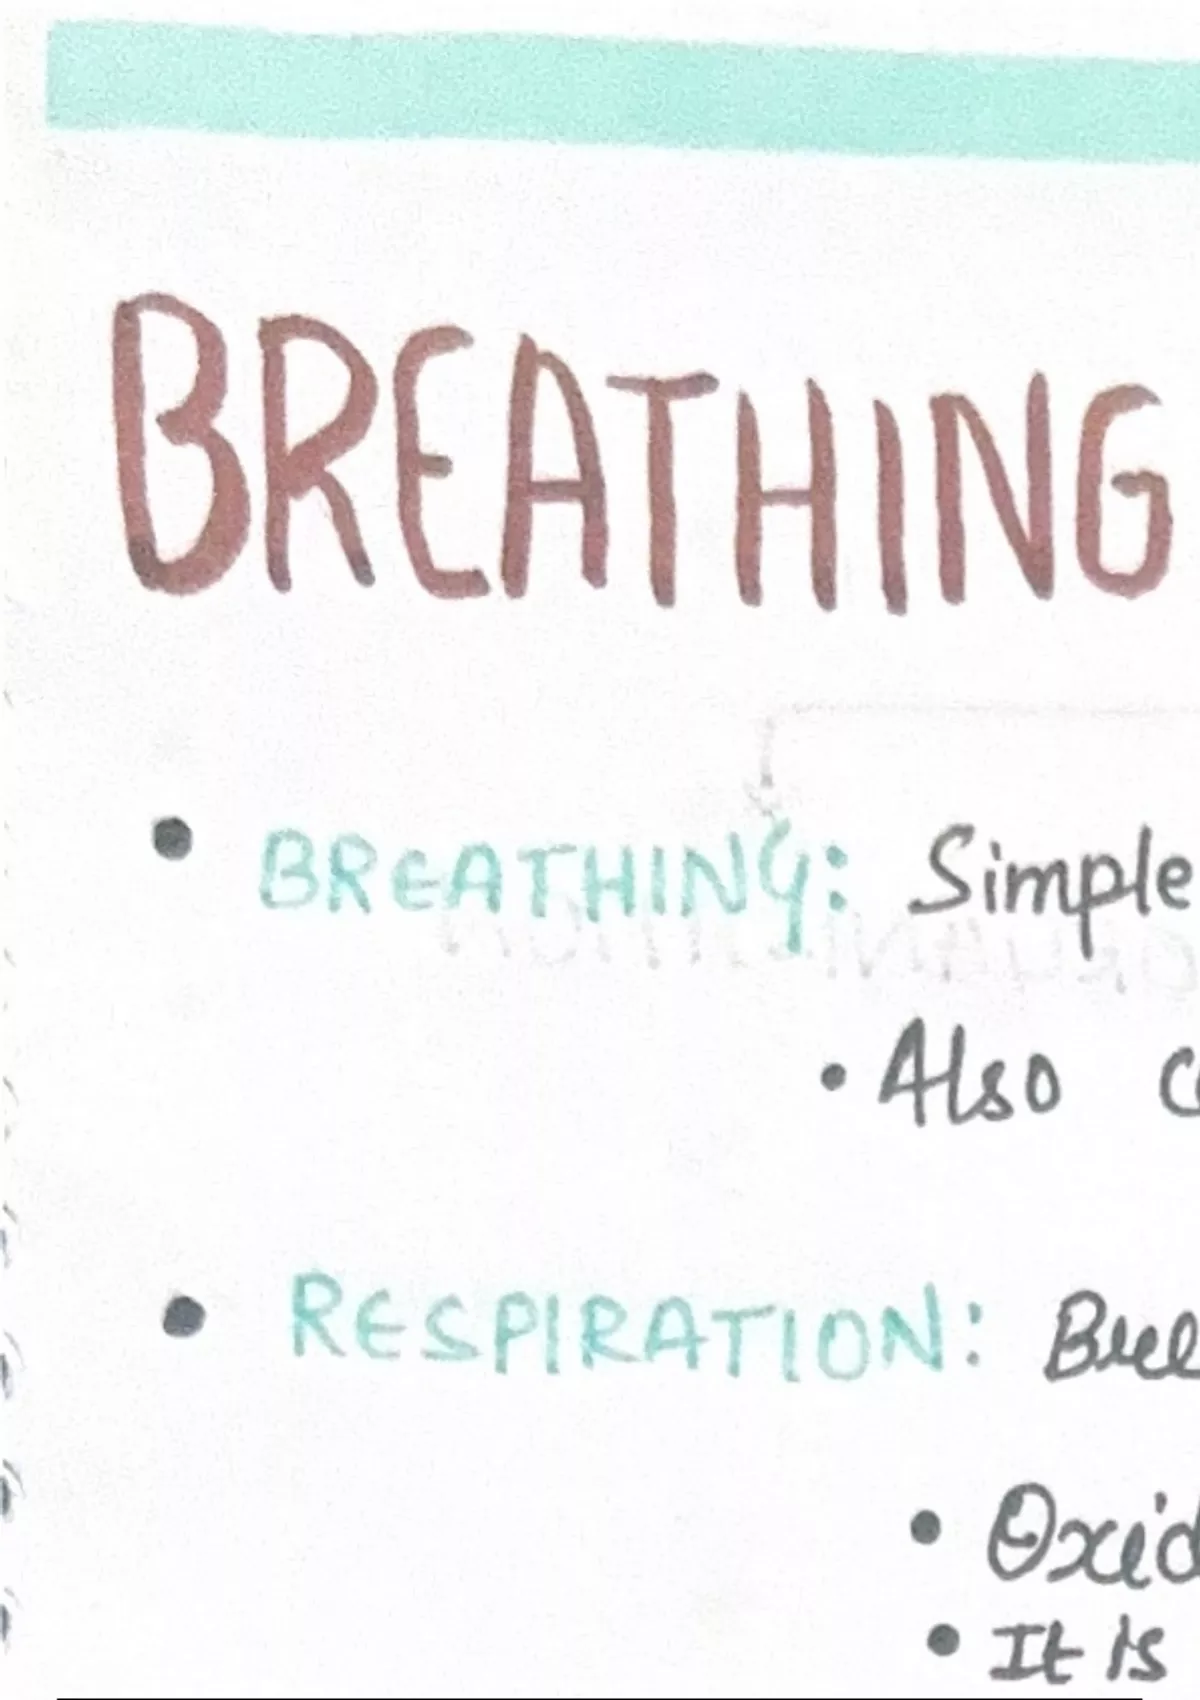 BREATHING
• BREATHING: Simple
• Also
• RESPIRATION:
•
• It is